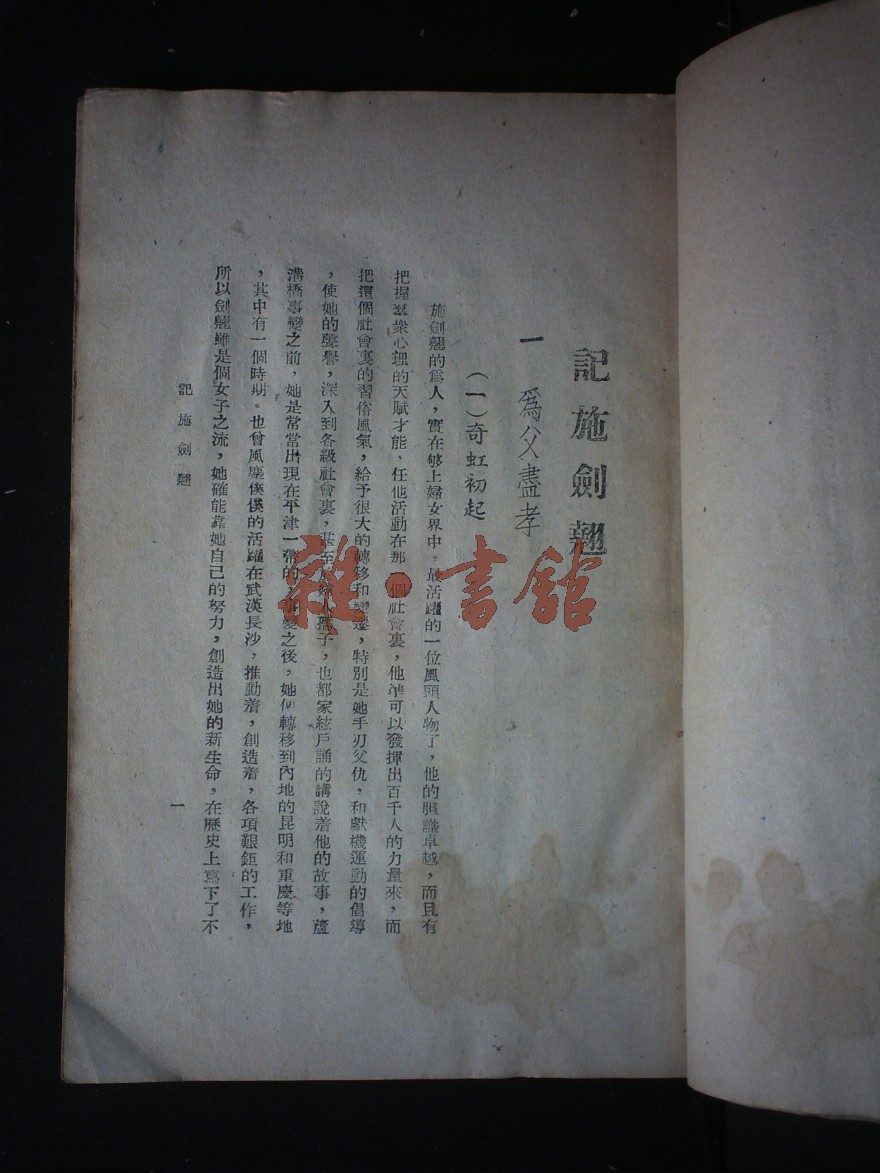 記施劍翹
一 爲父盡孝
(一)奇虹初起
施劍翹的爲人，實在够上婦女界中。最活躍的一位風頭人物了，他的胆識卓越，而且有
把握羣衆心理的天賦才能，任他活動在那一個社會裏，他準可以發揮出百千人的力量來，而
把這個社會裏的習俗風氣，給予很大的轉移和變遷，特別是她手刃父仇，和獻機運動的倡導
，使她的聲譽，深入到各級社會裏，甚至於婦人孺子，也都家絃戶誦的講說着他的故事，蘆
溝橋事變之前，她是常常出現在平津一帶的，事變之後，她便轉移到內地的昆明和重慶等地
，其中有一個時期。也曾風塵僕僕的活躍在武漢長沙，推動着，創造着，各項艱鉅的工作，
所以劍翹雖是個女子之流，她確能靠她自己的努力，創造出她的新生命，在歷史上寫下了不
記施劍翹
一
雜·書館